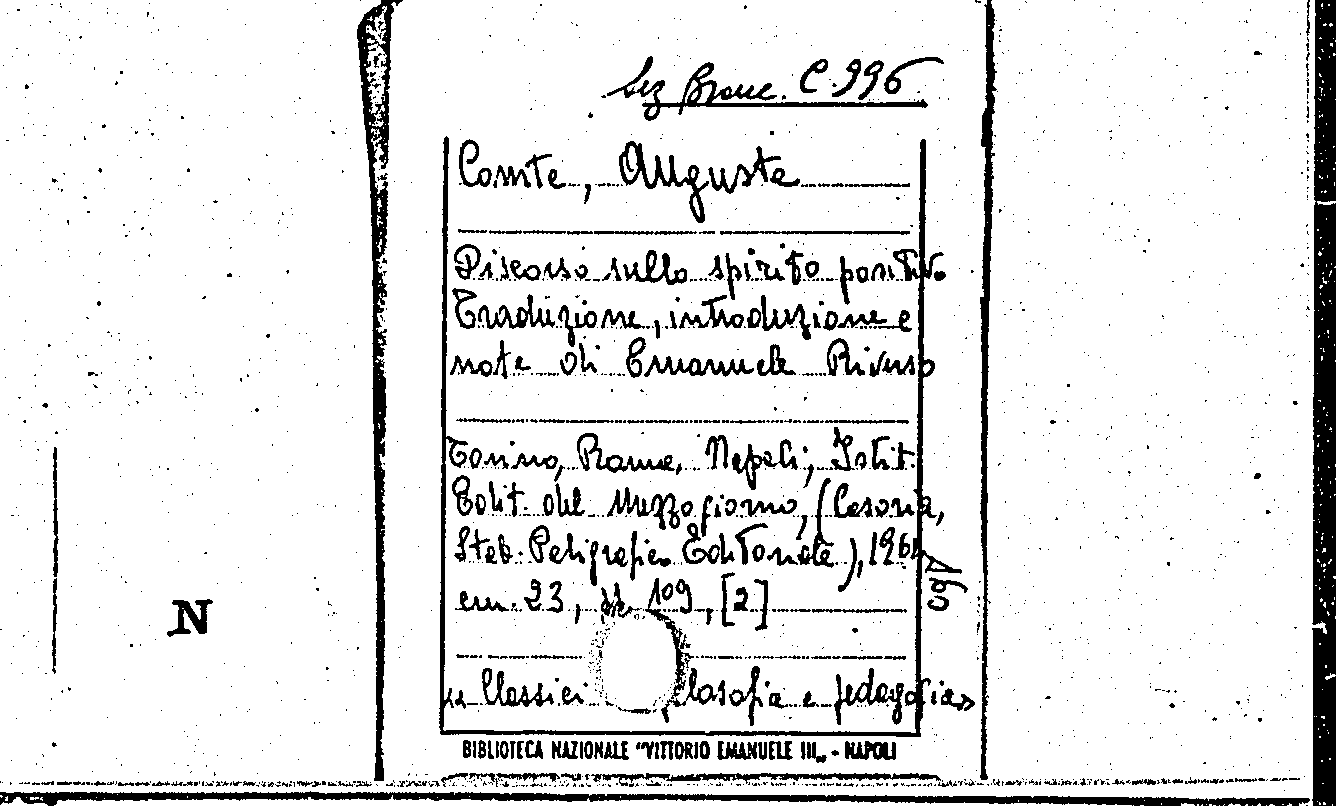 Sez Branc. C. 996
Comte, Auguste
Discorso sullo spirito positivo
Traduzione, introduzione e
note di Emanuele Riverso
Torino, Roma, Napoli, Istit.
Edit. del Mezzogiorno, (Cesoria,
Stab. Poligrafico Editoriale), 1964
cm. 23, pp. 109, [2]
N
cgA
« Classici filosofia e pedagogia»
BIBLIOTECA NAZIONALE "VITTORIO EMANUELE III„ - NAPOLI